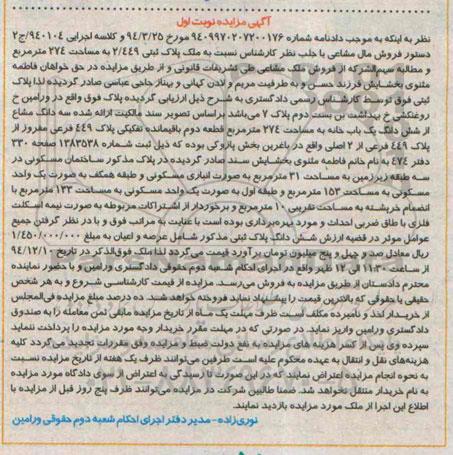 آگهی مزایده نوبت اول
نظر به اینکه به موجب دادنامه شماره ۹۴۰۹۹۷۰۲۰۷۲۰۰۱۷۶ مورخ ۹۴/۳/۲۵ و کلاسه اجرایی ۹۴۰۱۰۴/ج۲
دستور فروش مال مشاعی با جلب نظر کارشناس نسبت به ملک پلاک ثبتی ۲/۴۴۹ به مساحت ۲۷۴ مترمربع
و مطالبه سهم‌الشرکه از فروش ملک مشاعی طی تشریفات قانونی و از طریق مزایده در حق خواهان فاطمه
مثنوی بخشایش فرزند حسن و به طرفیت مریم و لادن کیهانی و بهناز حاجی عباسی صادر گردیده لذا پلاک
ثبتی فوق توسط کارشناس رسمی دادگستری به شرح ذیل ارزیابی گردیده پلاک فوق واقع در ورامین خ
روغنکشی خ بهداشت بن بست دوم پلاک ۷ می‌باشد براساس تصویر سند مالکیت ارائه شده سه دانگ مشاع
از شش دانگ یک باب خانه به مساحت ۲۷۴ مترمربع قطعه دوم باقیمانده تفکیکی پلاک ۴۴۹ فرعی مفروز از
پلاک ۴۴۹ فرعی از ۲ اصلی واقع در باغرین بخش پازوکی بوده که ذیل ثبت شماره ۱۳۸۳۵۳۸ صفحه ۳۳۰
دفتر ۴۷۴ به نام خانم فاطمه مثنوی بخشایش سند صادر گردیده در پلاک مذکور ساختمان مسکونی در
سه طبقه زیرزمین به مساحت ۳۱ مترمربع به صورت انباری مسکونی و طبقه همکف به صورت یک واحد
مسکونی به مساحت ۱۵۳ مترمربع و طبقه اول به صورت یک واحد مسکونی به مساحت ۱۳۳ مترمربع با
انضمام خرپشته به مساحت تقریبی ۱۰ مترمربع و برخوردار از اشتراکات مربوطه به صورت نیمه اسکلت
فلزی با طاق ضربی احداث و مورد بهره‌برداری بوده است با عنایت به مراتب فوق و با در نظر گرفتن جمیع
عوامل موثر در قضیه ارزش شش دانگ پلاک ثبتی مذکور شامل عرصه و اعیان به مبلغ ۱/۴۵۰/۰۰۰/۰۰۰
ریال معادل صد و چهل و پنج میلیون تومان برآورد قیمت می‌گردد لذا ملک فوق‌الذکر در تاریخ ۹۴/۱۲/۱۰
از ساعت ۱۱:۳۰ الی ۱۲ ظهر واقع در اجرای احکام شعبه دوم حقوقی دادگستری ورامین و با حضور نماینده
محترم دادستان از طریق مزایده به فروش می‌رسد. مزایده از قیمت کارشناسی شروع و به هر شخص
حقیقی یا حقوقی که بالاترین قیمت را پیشنهاد نماید فروخته خواهد شد. ده درصد مبلغ مزایده فی‌المجلس
از خریدار اخذ و نامبرده مکلف است ظرف مهلت یک ماه از تاریخ مزایده مابقی ثمن معامله را به صندوق
دادگستری ورامین واریز نماید. در صورتی که در مهلت مقرر خریدار وجه مورد مزایده را پرداخت ننماید
سپرده وی پس از کسر هزینه های مزایده به نفع دولت ضبط و مزایده وفق مقررات تجدید می‌گردد کلیه
هزینه‌های نقل و انتقال به عهده محکوم علیه است طرفین می‌توانند ظرف یک هفته از تاریخ مزایده نسبت
به نحوه انجام مزایده اعتراض نمایند که در این صورت تا رسیدگی به اعتراض از سوی دادگاه مورد مزایده
به نام خریدار منتقل نخواهد شد. ضمنا طالبین شرکت در مزایده می‌توانند ظرف پنج روز قبل از مزایده با
اطلاع این اجرا از ملک مورد مزایده بازدید نمایند.
نوری‌زاده - مدیر دفتر اجرای احکام شعبه دوم حقوقی ورامین